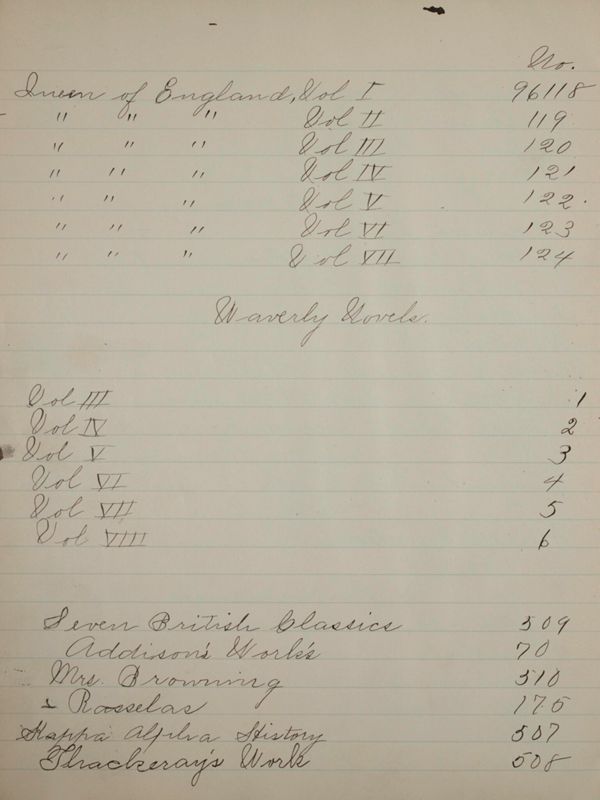 No.
Queen of England, Vol I 96118
" " " Vol II 119
" " " Vol III 120
" " " Vol IV 121
" " " Vol V 122.
" " " Vol VI 123
" " " Vol VII 124
Waverly Novels.
Vol III 1
Vol IV 2
Vol V 3
Vol VI 4
Vol VII 5
Vol VIII 6
Seven British Classics 509
Addison's Work's 70
Mrs. Browning 510
Rasselas 175
Kappa Alpha History 507
Thackeray's Work 508